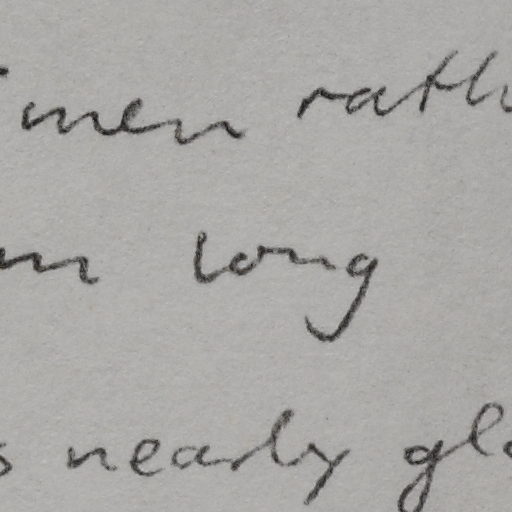 men rath
n long
s nearly gl